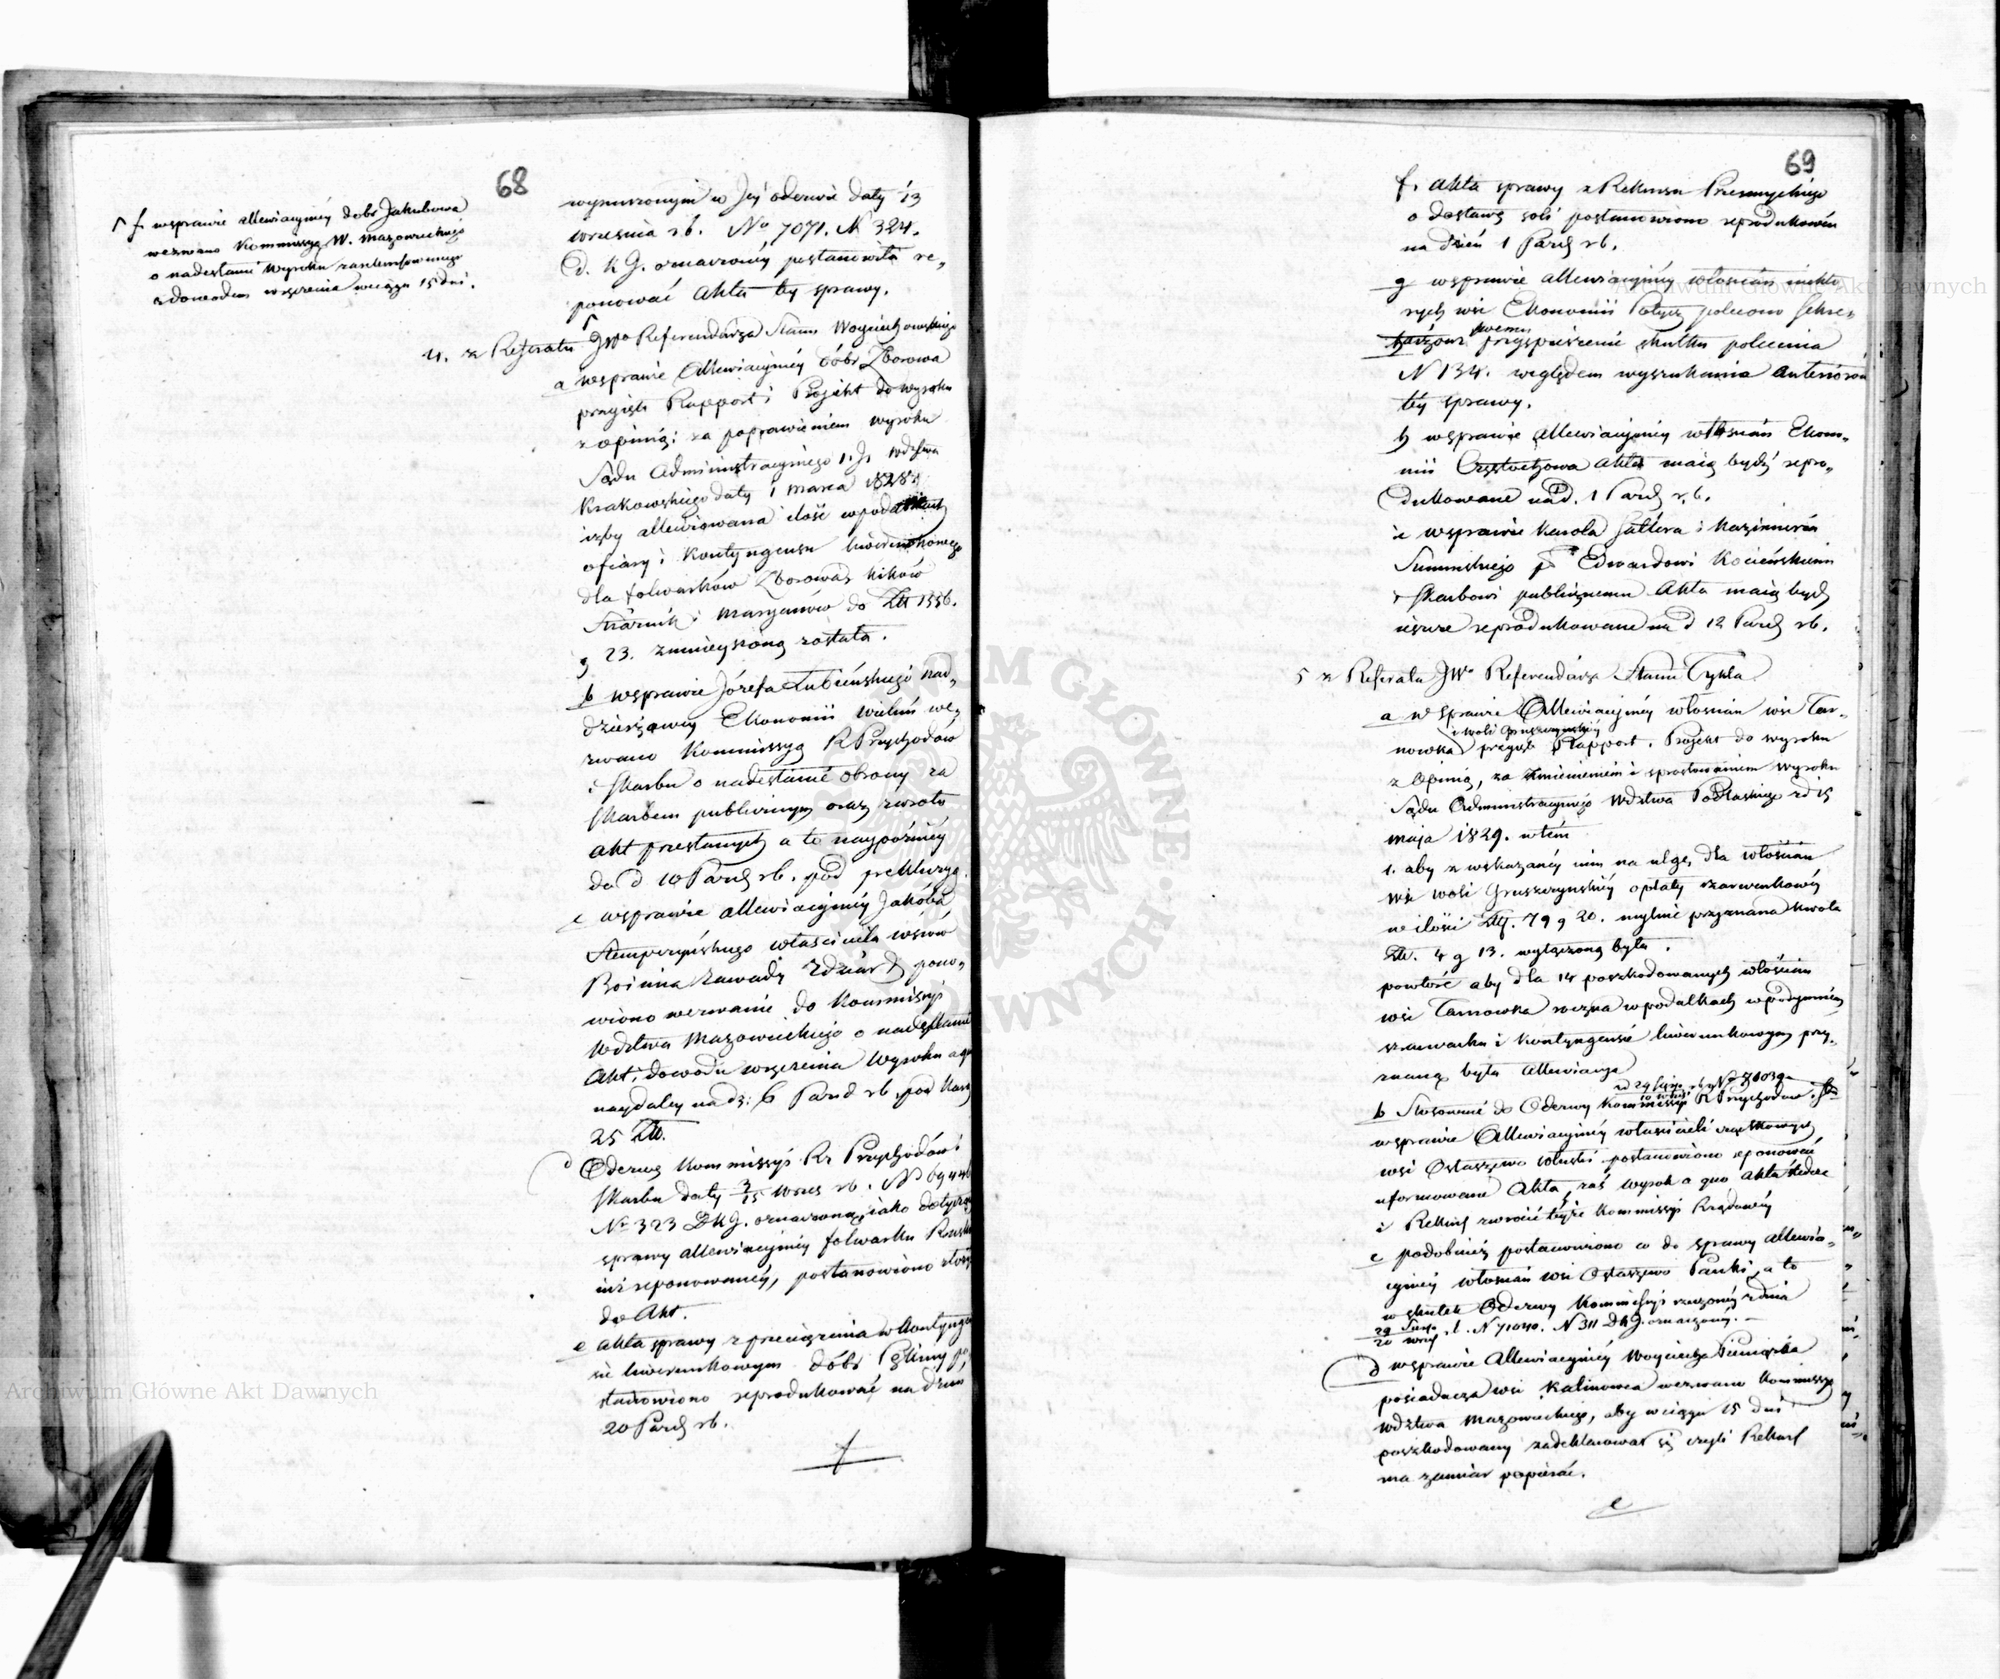 68
f. w sprawie allewiacyjney dobr Jakubowa
wezwano Kommissyą W. Mazowieckiego
o nadesłanie Wyroku
z dowodem wręczenia w ciągu 15 dni.
wynurzonym w Jey odezwie daty 13
września rb. No 7071. N 324.
D. K G. oznaczoney postanowiła re„
ponować Akta tey sprawy.
4. z Referatu JWo Referendarza Stanu Woyciechowskiego
a w sprawie Allewiacyjnéy dóbr Zborowa
przyięto Rapport i Projekt do wyroku
z opinią: za poprawieniem wyroku
Sądu Administracyjnego Wdztwa
Krakowskiego daty 1 marca 1828 r.
iżby allewiowana ilość w podatkach
ofiary i Kontyngensu liwerunkowego
dla folwarków Zborowa, Kików
i Maryanów do Złt 1556.
g 23. zmnieyszoną została.
b w sprawie Józefa Łubieńskiego nad„
dzierżawcy Ekonomii Wieluń we„
zwano Kommissyą R Przychodów
i Skarbu o nadesłanie obrony za
Skarbem publicznym oraz zwrotu
akt przesłanych a to naypóźniéy
do d 10 Paźdz rb. pod prekluzyą.
c w sprawie allewiacyjnéy Jakóba
Stempczyńskiego właściciela wsiów
Boimia Zawady pono„
wiono wezwanie do Kommissyi
Wdztwa Mazowieckiego o nadesłanie
Akt, dowodu wręczenia Wyroku a quo
naydaléy na dz: 6 Paźd rb. pod karą
25 Złt.
d Odezwę Kommissyi Rz Przychodów i
Skarbu daty 3/15 Wrześ rb. No 69446
No 323 DKG. oznaczoną, iako dotyczącą
sprawy allewiacyjnéy folwarku
iuż reponowanéy, postanowiono złożyć
do Akt.
e akta sprawy z przeciążenia w kontyngen
sie liwerunkowym dóbr po„
stanowiono reprodukować na dzień
20 Paźdz rb.
f
69
f. Akta sprawy z Rekursu Przesmyckiego
o dostawę soli postanowiono reprodukować
na dzień 1 Paźdz rb.
g w sprawie allewiacyjnéy włościan niektó
rych wsi Ekonomii Potycz polecono Sekre„
tarzowi swemu przyspieszenie skutku polecenia
N 134. względem wyszukania anteriorów
téy sprawy.
h w sprawie allewiacyjnéy włościan Ekono„
mii Częstochowa akta maią bydź repro„
dukowane na d. 1 Paźdz r.b.
i w sprawie Karola i Kazimierza
Sumińskiego Edwardowi Kocieńskiemu
i Skarbowi publicznemu Akta maią bydź
ieszcze reprodukowane na d 12 Paźdz rb.
5 z Referatu JWo Referendarza Stanu Tykla
a w Sprawie Allewiacyjnéy włościan wsi Tar„
nowka i Woli Gruszczyńskiéy przyięto Rapport i Projekt do wyroku
z Opinią, za zmienieniem i sprostowaniem wyroku
Sądu Administracyjnego Wdztwa Podlaskiego z d 15
maja 1829. w tém
1. aby z wskazanéy nim na ulgę dla włościan
wsi Woli Gruszczyńskiéy opłaty szarwarkowéy
w ilości Złt. 79 g 20. mylnie przyznana kwota
Złt. 4 g 13. wyłączoną była.
powtóre aby dla 14 poszkodowanych włościan
wsi Tarnowka roczna w podatkach w podymném
szarwarku i Kontyngensie liwerunkowym przy„
znaną była Allewiacya
b Stosownie do Odezwy Kommissyi R Przychodów i Sk
w sprawie Allewiacyjnéy właścicieli cząstkowych
wsi Ostaszewo Włuski postanowiono reponować
uformowane Akta, zaś wyrok a quo akta śledcze
i Rekurs zwrócić teyże Kommissyi Rządowéy
c podobnież postanowiono co do sprawy allewia„
cyjnéy włościan wsi Ostaszewo Pańki, a to
w skutek Odezwy Kommissyi rzeczonéy z dnia
N 71040. N 311 DKG. oznaczonéy.
d w sprawie Allewiacyjnéy Woyciecha
posiadacza wsi Kalinowca wezwano Kommissyą
Wdztwa Mazowieckiego, aby w ciągu 15 dni
poszkodowany zadeklarował się czyli Rekurs
ma zamiar popierać.
e
Archiwum Główne Akt Dawnych
Archiwum Główne Akt Dawnych
ARCHIWUM GŁÓWNE AKT DAWNYCH